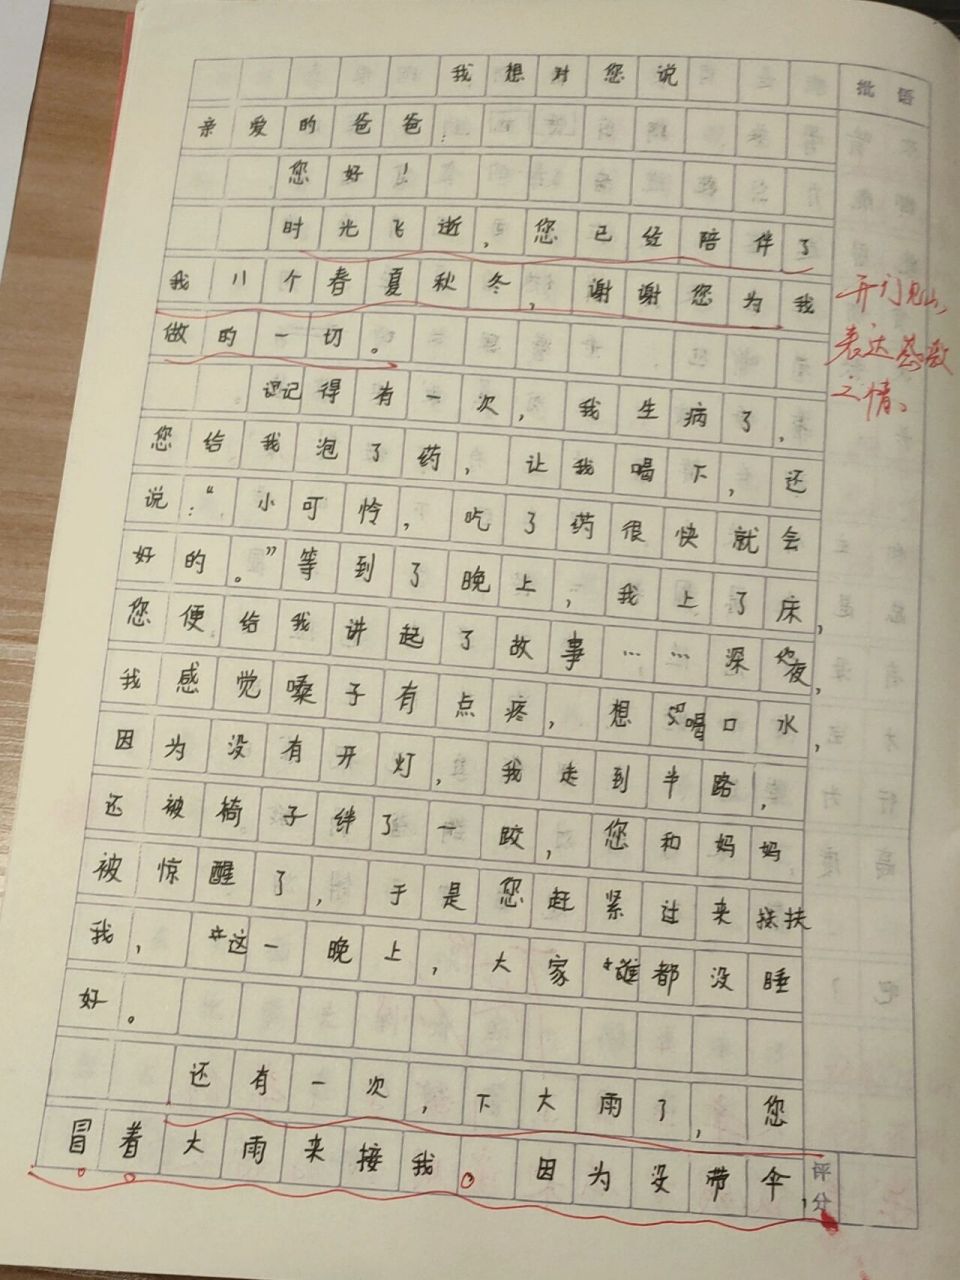 我想对您说
批语
亲爱的爸爸：
您好！
时光飞逝，您已经陪伴了
我八个春夏秋冬，谢谢您为我
做的一切。
开门见山，
表达感激
之情。
记得有一次，我生病了，
您给我泡了药，让我喝下，还
说：“小可怜，吃了药很快就会
好的。”等到了晚上，我上了床，
您便给我讲起了故事……深夜，
我感觉嗓子有点疼，想喝口水，
因为没有开灯，我走到半路，
还被椅子绊了一跤，您和妈妈
被惊醒了，于是您赶紧过来扶
我，这一晚上，大家谁都没睡
好。
还有一次，下大雨了，您
冒着大雨来接我。因为没带伞，
评分